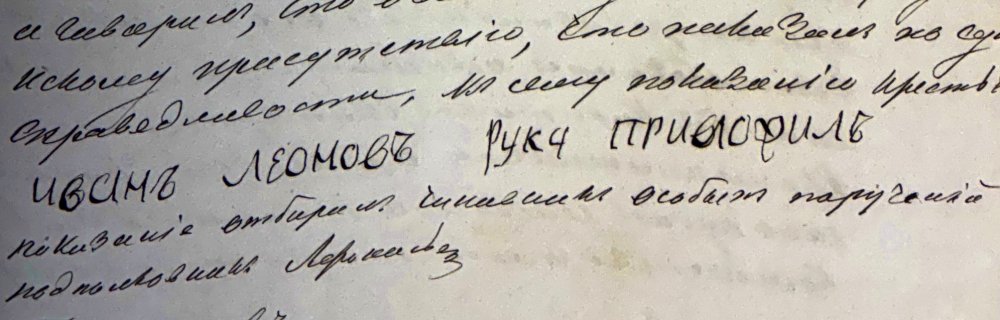 и говорилъ, что
искому присутствію, что показалъ по
справедливости, къ сему показанію
ИВАНЪ ЛЕОНОВЪ РУКУ ПРИЛОФИЛЪ
показаніе отбиралъ чиновникъ особыхъ порученій
подполковникъ